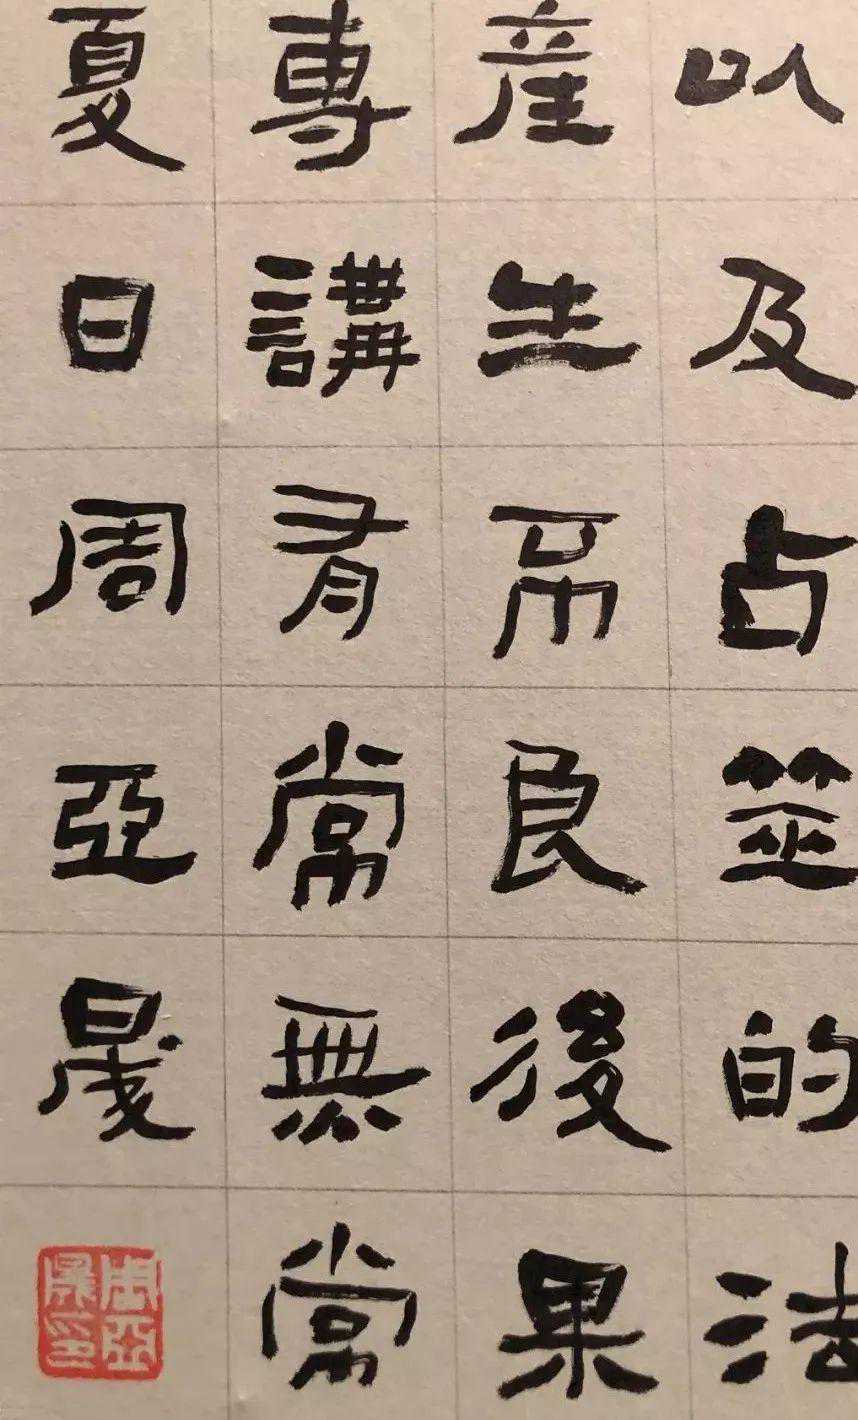 以及占筮的法
産生不良後果
專講有常無常
夏日周亞晟
周亞晟印